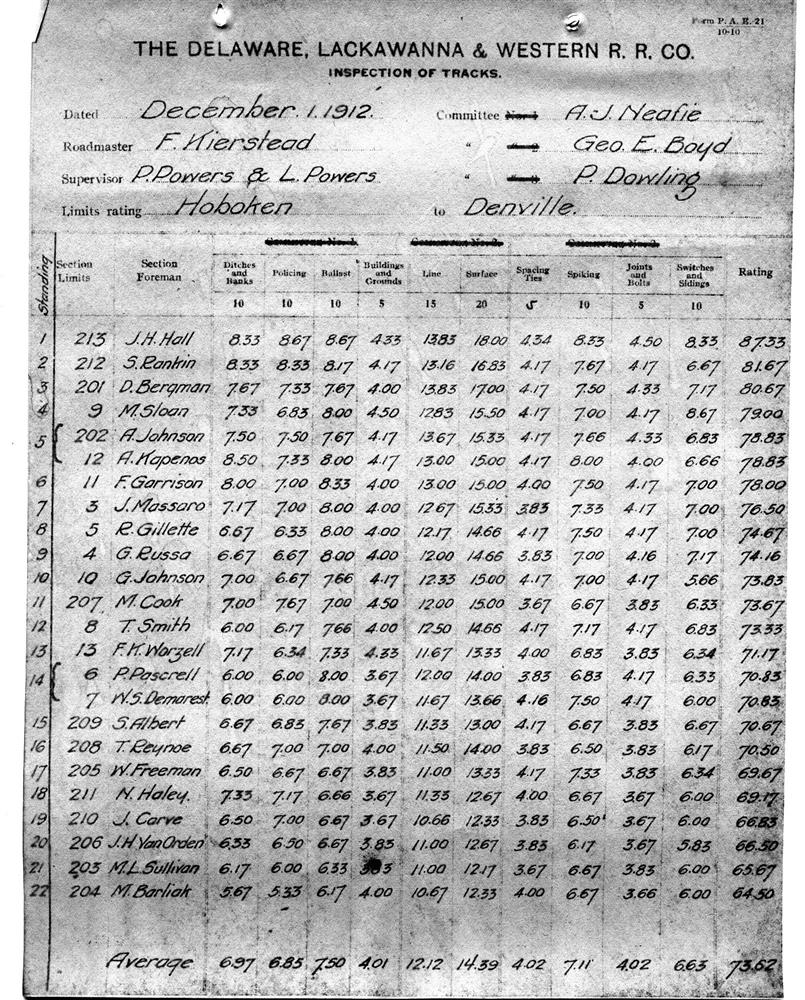 Form P. A. E. 21
10-10
THE DELAWARE, LACKAWANNA & WESTERN R. R. CO.
INSPECTION OF TRACKS.
Dated December. 1. 1912. Committee No. 1 A. J. Neafie
Roadmaster F. Kierstead " 2 Geo. E. Boyd
Supervisor P. Powers & L. Powers " 3 P. Dowling
Limits rating Hoboken to Denville.
Committee No. 1. Committee No. 2. Committee No. 3.
Standing Section Limits Section Foreman Ditches and Banks Policing Ballast Buildings and Grounds Line Surface Spacing Ties Spiking Joints and Bolts Switches and Sidings Rating
10 10 10 5 15 20 5 10 5 10
1 213 J. H. Hall 8.33 8.67 8.67 4.33 13.83 18.00 4.34 8.33 4.50 8.33 87.33
2 212 S. Rankin 8.33 8.33 8.17 4.17 13.16 16.83 4.17 7.67 4.17 6.67 81.67
3 201 D. Bergman 7.67 7.33 7.67 4.00 13.83 17.00 4.17 7.50 4.33 7.17 80.67
4 9 M. Sloan 7.33 6.83 8.00 4.50 12.83 15.50 4.17 7.00 4.17 8.67 79.00
5 { 202 A. Johnson 7.50 7.50 7.67 4.17 13.67 15.33 4.17 7.66 4.33 6.83 78.83
12 A. Kapenos 8.50 7.33 8.00 4.17 13.00 15.00 4.17 8.00 4.00 6.66 78.83
6 11 F. Garrison 8.00 7.00 8.33 4.00 13.00 15.00 4.00 7.50 4.17 7.00 78.00
7 3 J. Massaro 7.17 7.00 8.00 4.00 12.67 15.33 3.83 7.33 4.17 7.00 76.50
8 5 R. Gillette 6.67 6.33 8.00 4.00 12.17 14.66 4.17 7.50 4.17 7.00 74.67
9 4 G. Russa 6.67 6.67 8.00 4.00 12.00 14.66 3.83 7.00 4.16 7.17 74.16
10 10 G. Johnson 7.00 6.67 7.66 4.17 12.33 15.00 4.17 7.00 4.17 5.66 73.83
11 207 M. Cook 7.00 7.67 7.00 4.50 12.00 15.00 3.67 6.67 3.83 6.33 73.67
12 8 T. Smith 6.00 6.17 7.66 4.00 12.50 14.66 4.17 7.17 4.17 6.83 73.33
13 13 F. K. Worzell 7.17 6.34 7.33 4.33 11.67 13.33 4.00 6.83 3.83 6.34 71.17
14 { 6 P. Pascrell 6.00 6.00 8.00 3.67 12.00 14.00 3.83 6.83 4.17 6.33 70.83
7 W. S. Demarest 6.00 6.00 8.00 3.67 11.67 13.66 4.16 7.50 4.17 6.00 70.83
15 209 S. Albert 6.67 6.83 7.67 3.83 11.33 13.00 4.17 6.67 3.83 6.67 70.67
16 208 T. Reynoe 6.67 7.00 7.00 4.00 11.50 14.00 3.83 6.50 3.83 6.17 70.50
17 205 W. Freeman 6.50 6.67 6.67 3.83 11.00 13.33 4.17 7.33 3.83 6.34 69.67
18 211 N. Haley. 7.33 7.17 6.66 3.67 11.33 12.67 4.00 6.67 3.67 6.00 69.17
19 210 J. Carve 6.50 7.00 6.67 3.67 10.66 12.33 3.83 6.50 3.67 6.00 66.83
20 206 J. H. Van Orden 6.33 6.50 6.67 3.83 11.00 12.67 3.83 6.17 3.67 5.83 66.50
21 203 M. L. Sullivan 6.17 6.00 6.33 3.83 11.00 12.17 3.67 6.67 3.83 6.00 65.67
22 204 M. Barliak 5.67 5.33 6.17 4.00 10.67 12.33 4.00 6.67 3.66 6.00 64.50
Average 6.97 6.85 7.50 4.01 12.12 14.39 4.02 7.11 4.02 6.63 73.62